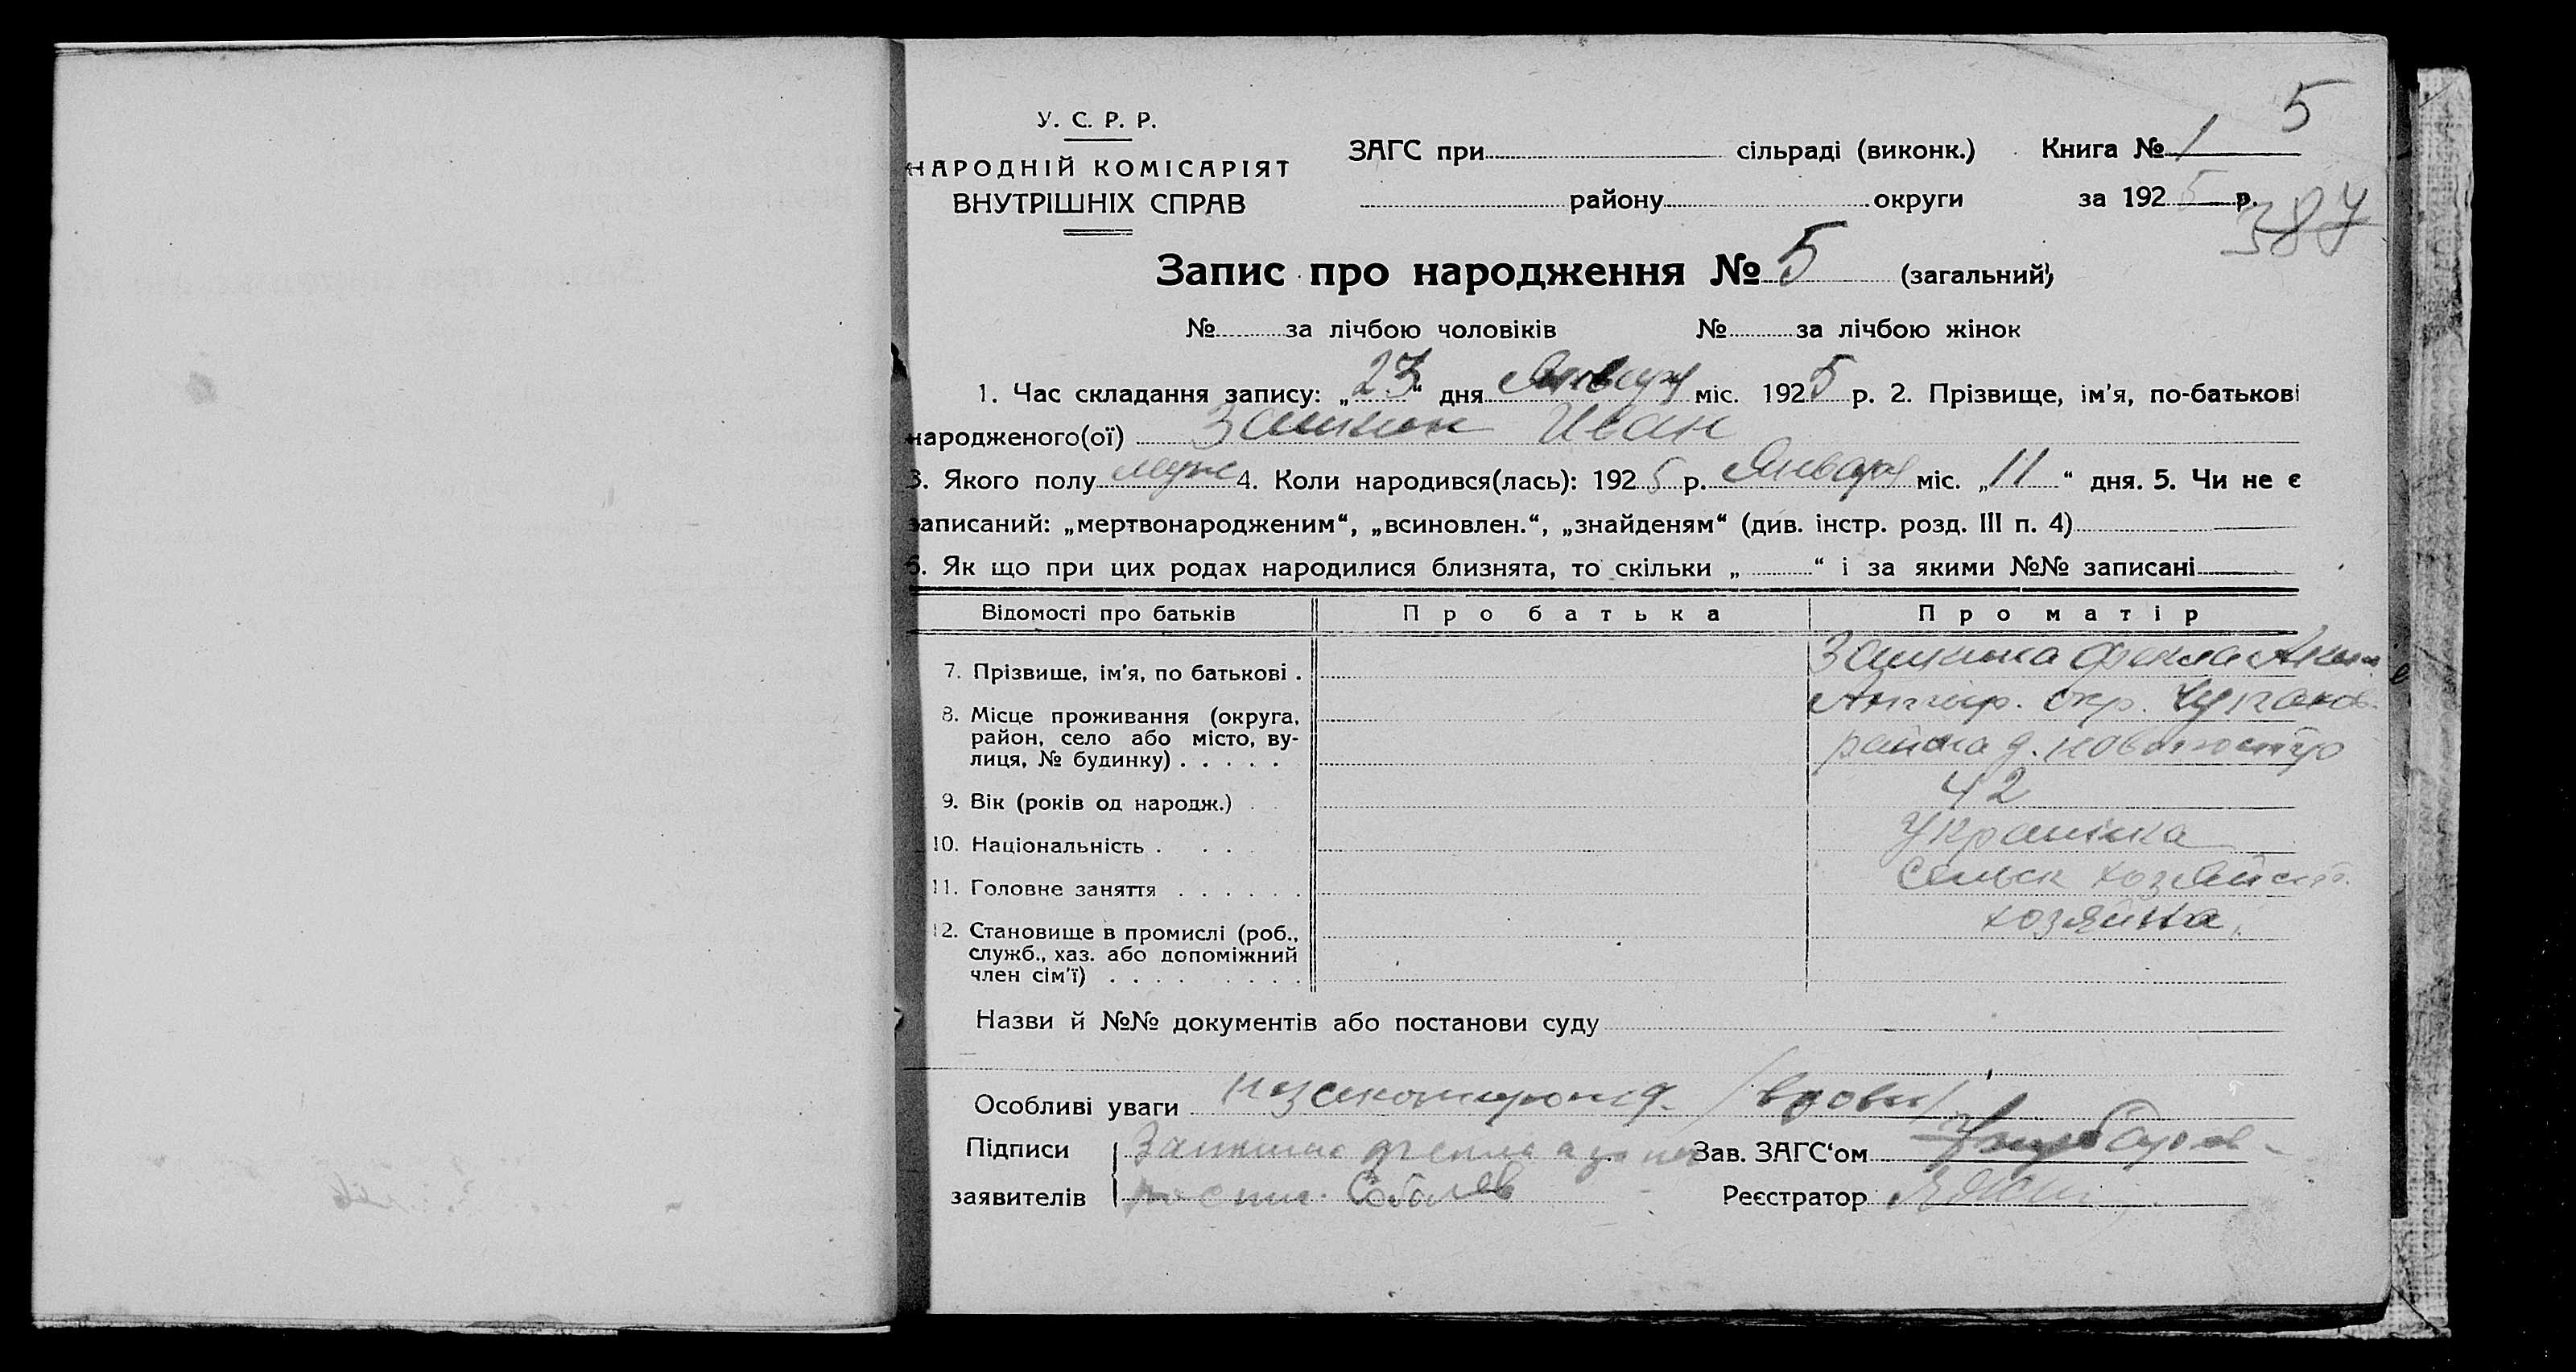 5
У. С. Р. Р.
НАРОДНІЙ КОМІСАРІЯТ
ВНУТРІШНІХ СПРАВ
ЗАГС при сільраді (виконк.) Книга № 1
району округи за 1925 р.
387
Запис про народження № 5 (загальний)
№ за лічбою чоловіків № за лічбою жінок
1. Час складання запису: „23“ дня Января міс. 1925 р. 2. Прізвище, ім'я, по-батькові
народженого(ої) Иван
3. Якого полу муж 4. Коли народився(лась): 1925 р. Января міс. „11“ дня. 5. Чи не є
записаний: „мертвонародженим“, „всиновлен.“, „знайденям“ (див. інстр. розд. III п. 4)
6. Як що при цих родах народилися близнята, то скільки „ “ і за якими №№ записані
Відомості про батьків Про батька Про матір
7. Прізвище, ім'я, по батькові . Фекла
8. Місце проживання (округа, окр.
район, село або місто, ву- района
лиця, № будинку) . . . . .
9. Вік (років од народж.) 42
10. Національність . . . Украинка
11. Головне заняття . . . . . . Сельск хозяйст.
12. Становище в промислі (роб., хозяйка
служб., хаз. або допоміжний
член сім'ї) . . . . . . . .
Назви й №№ документів або постанови суду
Особливі уваги /вдова/
Підписи Фекла Зав. ЗАГС'ом
заявителів Соболев Реєстратор